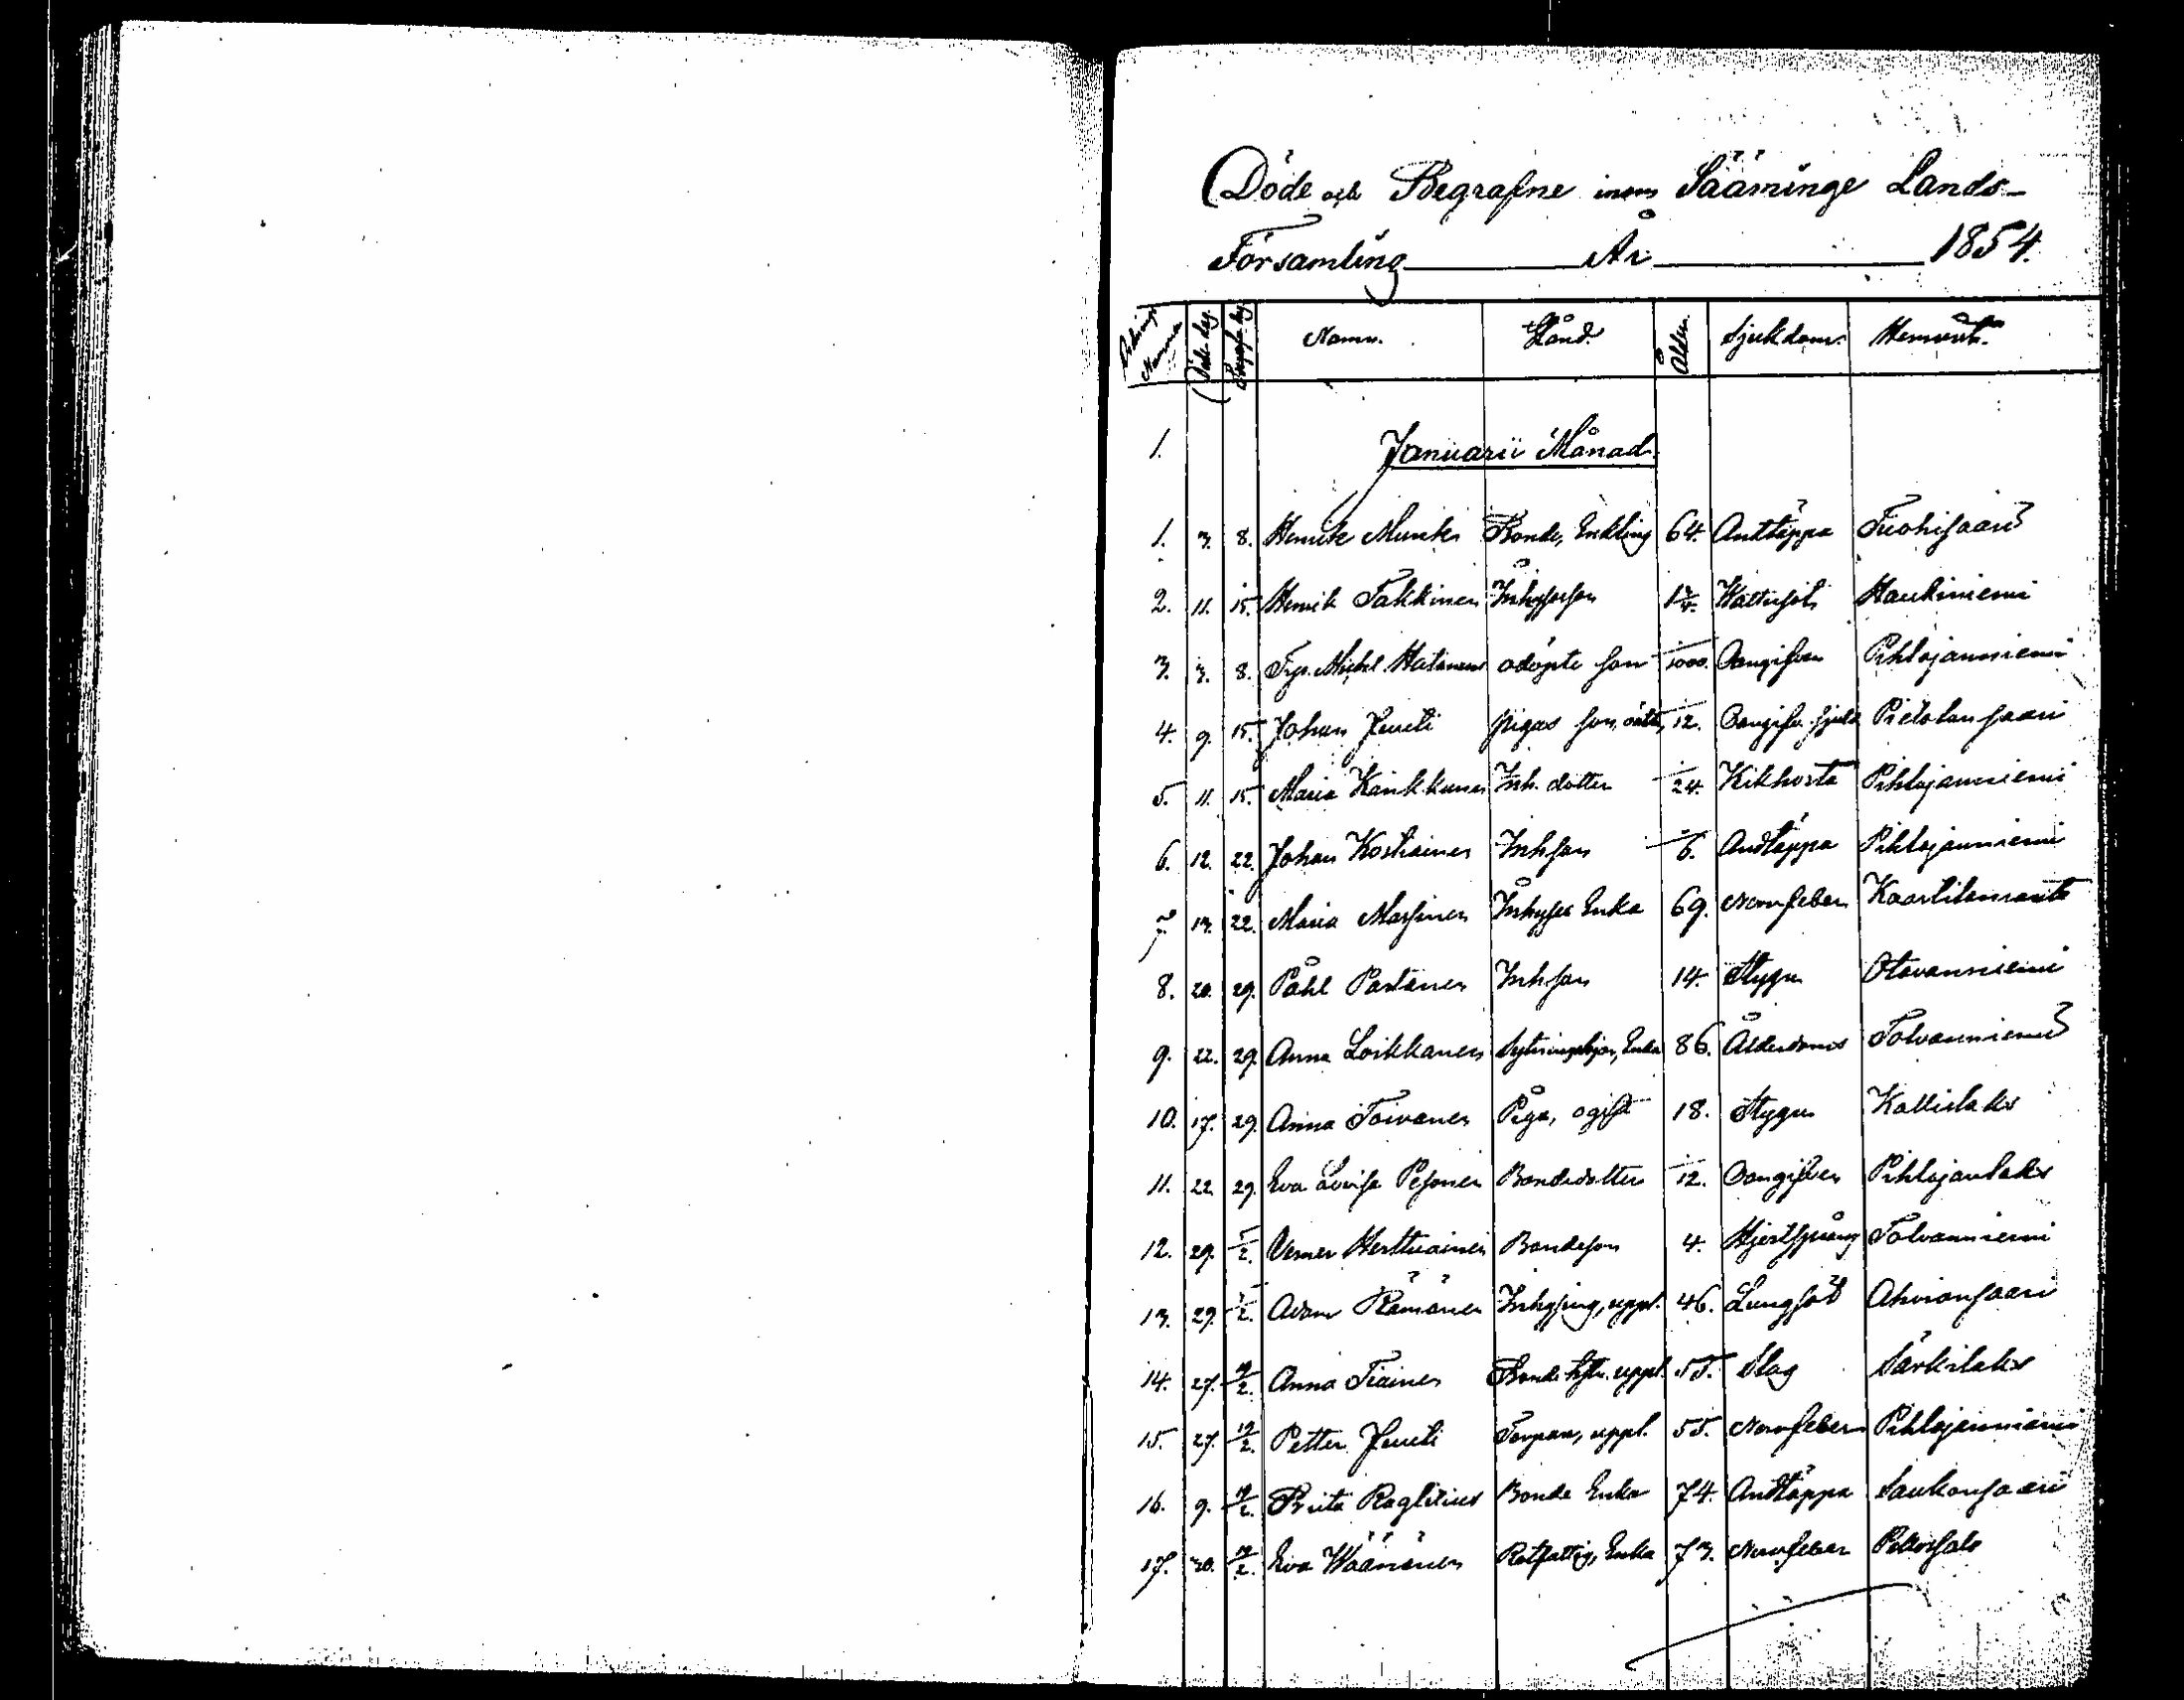 Döde och Begrafne inom Sääminge Lands-
Församling År 1854.
Nummer Döde dag. Begrafn. dag Namn. Stånd. Ålder. Sjukdom. Hemvist.
1. Januarii Månad.
1. 3. 8. Henrik Munck Bonde, Enkling 64. Andtäppa Tuohisaari
2. 11. 15. Henrik Takkinen Inhysesson Wattusot Haukiniemi
3. 3. 8. Michel Hatinen odöpte son 1/000. Oangifven Pihlajanniemi
4. 9. 15. Johan Jeuti pigas son, oäkta, 1/12. Oangifv. sjukd Pietolansaari
5. 11. 15. Maria Kankkunen Inh. dotter 1/24. Kikhosta Pihlajanniemi
6. 12. 22. Johan Kostiainen Inhson 1/6. Andtäppa Pihlajanniemi
7. 13. 22. Maria Massinen Inhyses Enka 69. Nervfeber Kaartilanranta
8. 20. 29. Påhl Partanen Inhson 14. Stygn Otavanniemi
9. 22. 29. Anna Loikkanen Sytningshjon, Enka 86. Ålderdoms Tolvanniemi
10. 17. 29. Anna Toivanen Piga, ogift 18. Stygn Kallislaks
11. 22. 29. Eva Lovisa Pesonen Bondedotter 1/12. Oangifven Pihlajanlaks
12. 29. 5/2. Verner Herttuainen Bondeson 4. Hjertsprång Tolvanniemi
13. 29. 5/2. Adam Rämänen Inhysing, uppl. 46. Lungsot Ahvionsaari
14. 27. 12/2. Anna Tiainen Bonde hstr. uppl. 55. Slag Särkilaks
15. 27. 12/2. Petter Jeuti Torpare, uppl. 55. Nervfeber Pihlajanniemi
16. 9. 12/2. Brita Raglitius Bonde Enka 74. Andtäppa Saukonsaari
17. 30. 12/2. Eva Wäänänen Rotfattig, Enka 73. Nervfeber